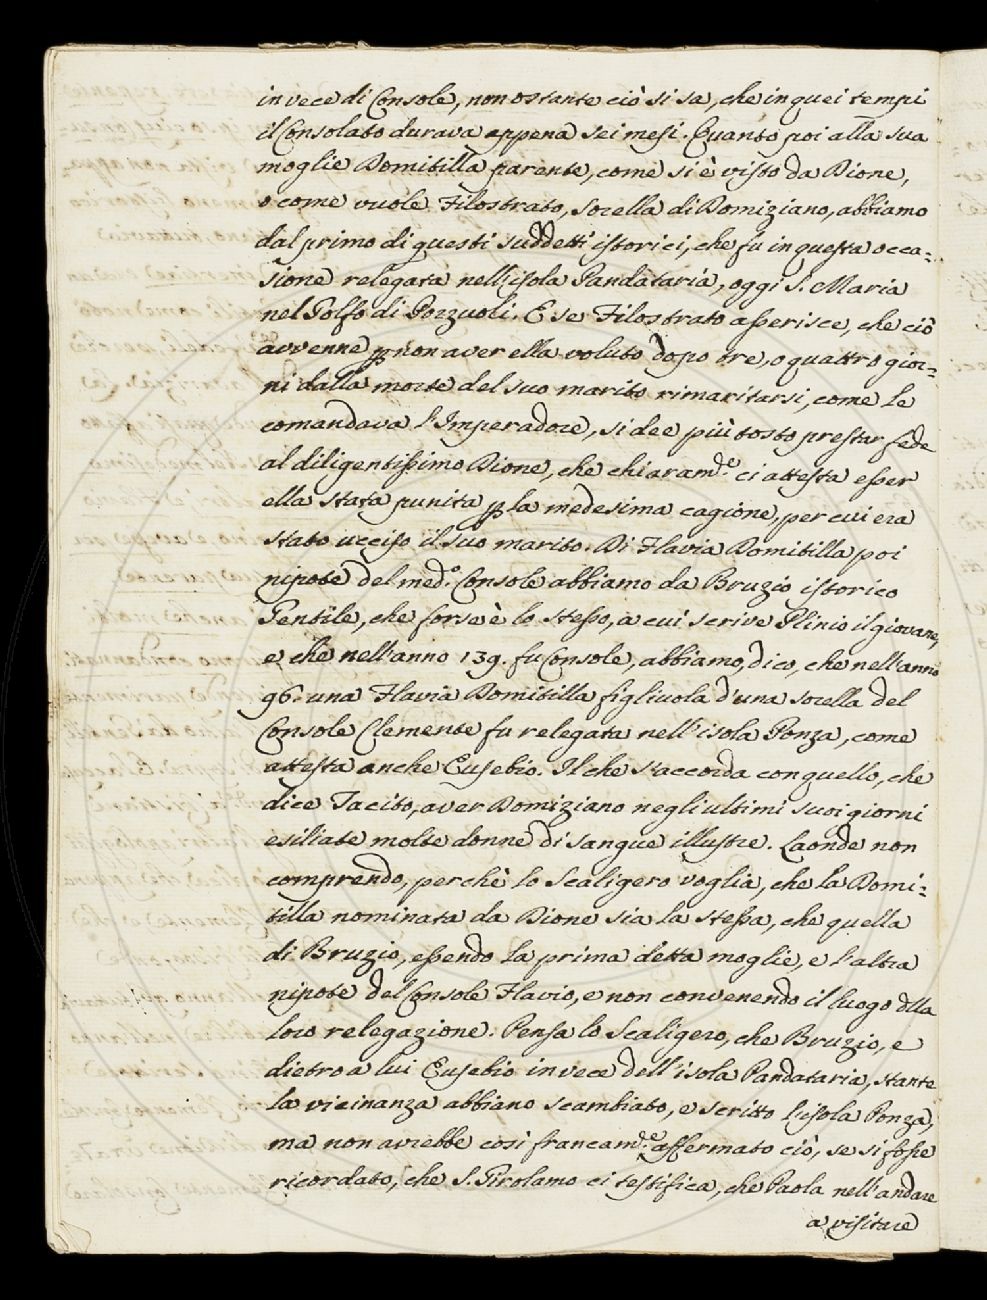 in vece di Console, non ostante ciò si sa, che in quei tempi
il Consolato durava appena sei mesi. Quanto poi alla sua
moglie Domitilla parente, come si è visto da Dione,
o come vuole Filostrato, sorella di Domiziano, abbiamo
dal primo di questi suddetti istorici, che fu in questa occa=
sione relegata nell'isola Pandataria, oggi S. Maria
nel Golfo di Pozzuoli. E se Filostrato asserisce, che ciò
avvenne p non aver ella voluto dopo tre, o quattro gior=
ni dalla morte del suo marito rimaritarsi, come le
comandava l'Imperadore, si dee più tosto prestar fede
al diligentissimo Dione, che chiaram.e ci attesta esser
ella stata punita p la medesima cagione, per cui era
stato ucciso il suo marito. Di Flavia Domitilla poi
nipote del med.o Console abbiamo da Bruzio istorico
Gentile, che forse è lo stesso, a cui scrive Plinio il giovane,
e che nell'anno 139. fu Console, abbiamo, dico, che nell'anno
96. una Flavia Domitilla figliuola d'una sorella del
Console Clemente fu relegata nell'isola Ponza, come
attesta anche Eusebio. Il che s'accorda con quello, che
dice Tacito, aver Domiziano negli ultimi suoi giorni
esiliate molte donne di sangue illustre. Laonde non
comprendo, perchè lo Scaligero voglia, che la Domi=
tilla nominata da Dione sia la stessa, che quella
di Bruzio, essendo la prima detta moglie, e l'altra
nipote del Console Flavio, e non convenendo il luogo dlla
loro relegazione. Pensa lo Scaligero, che Bruzio, e
dietro a lui Eusebio in vece dell'isola Pandataria, stante
la vicinanza abbiano scambiato, e scritto l'isola Ponza,
ma non avrebbe così francam.e affermato ciò, se si fosse
ricordato, che S. Girolamo ci testifica, che Paola nell'andare
a visitare